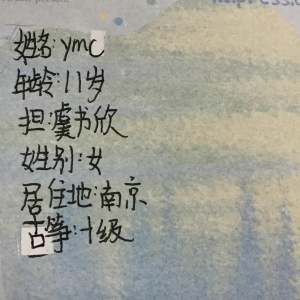 姓名:ymc
年龄:11岁
担:虞书欣
姓别:女
居住地:南京
古筝:十级